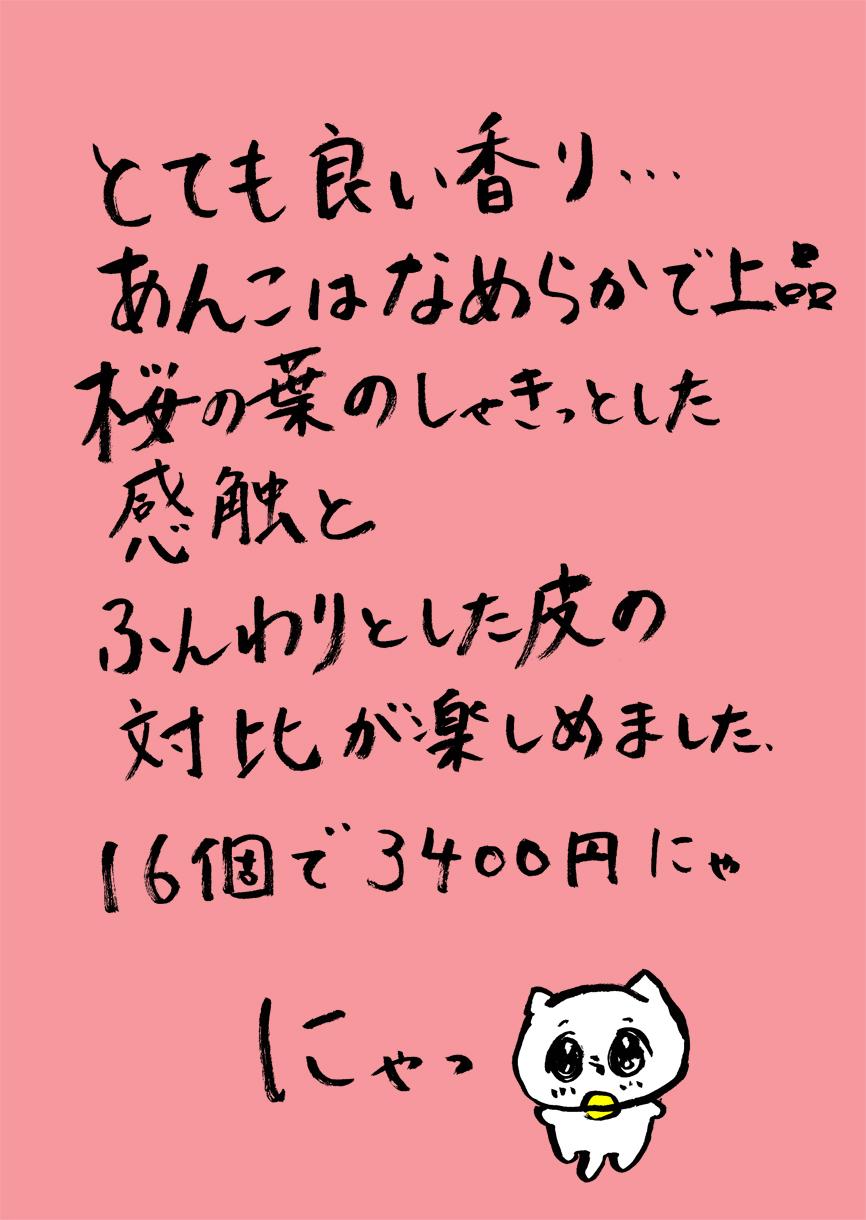 とても良い香り…
あんこはなめらかで上品
桜の葉のしゃきっとした
感触と
ふんわりとした皮の
対比が楽しめました、
16個で3400円にゃ
にゃっ